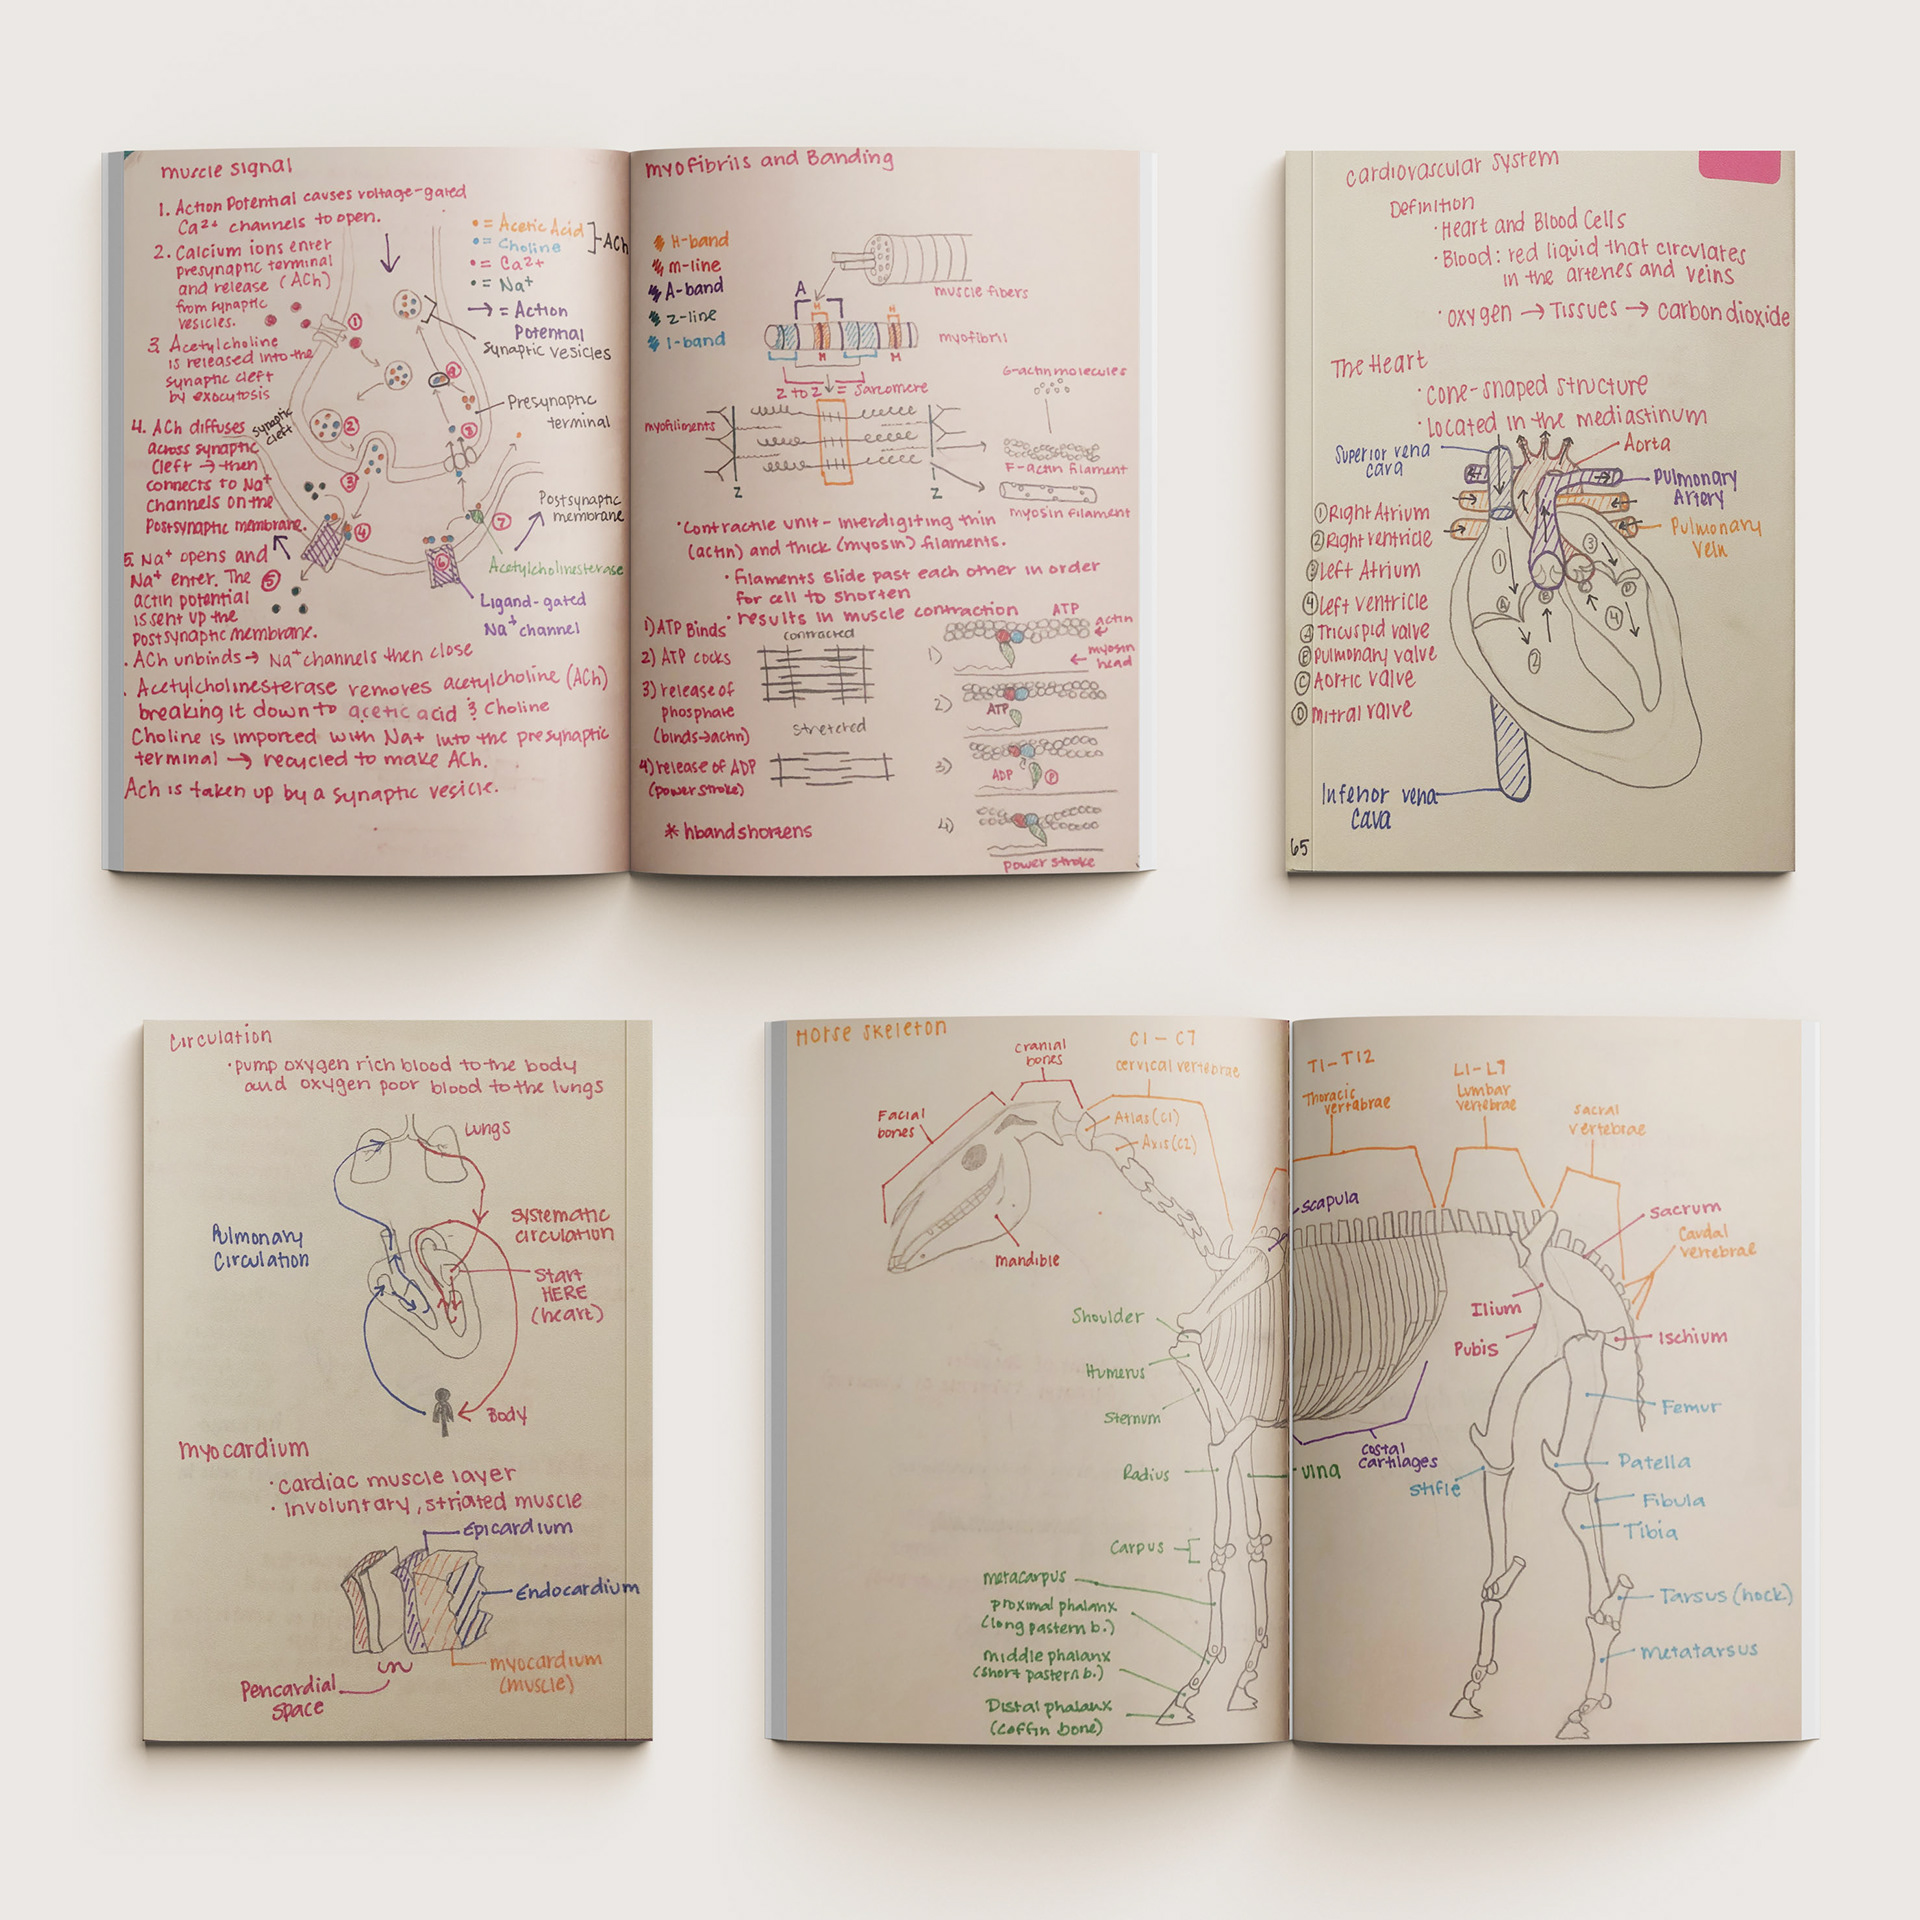 muscle signal
1. Action Potential causes voltage-gated
Ca²⁺ channels to open.
2. Calcium ions enter
presynaptic terminal
and release (ACh)
from synaptic
vesicles.
3. Acetylcholine
is released into the
synaptic cleft
by exocytosis
4. ACh diffuses
across synaptic
cleft → then
connects to Na⁺
channels on the
Postsynaptic membrane.
5. Na⁺ opens and
Na⁺ enter. The
actin potential
is sent up the
postsynaptic membrane.
• ACh unbinds → Na⁺ channels then close
• Acetylcholinesterase removes acetylcholine (ACh)
breaking it down to acetic acid & Choline
Choline is imported with Na+ into the presynaptic
terminal → recycled to make ACh.
Ach is taken up by a synaptic vesicle.
• = Acetic Acid
• = Choline
ACh
• = Ca²⁺
• = Na⁺
→ = Action
Potential
Synaptic vesicles
Presynaptic
terminal
synaptic
cleft
Postsynaptic
membrane
Acetylcholinesterase
Ligand-gated
Na⁺ channel
1
2
3
4
5
6
7
8
9
myofibrils and Banding
H-band
m-line
A-band
z-line
I-band
muscle fibers
A
H
H
myofibril
M
M
Z to Z = Sarcomere
G-actin molecules
myofiliments
F-actin filament
Z
Z
myosin filament
• Contractile unit - interdigiting thin
(actin) and thick (myosin) filaments.
• filaments slide past each other in order
for cell to shorten
• results in muscle contraction
1) ATP Binds
2) ATP cocks
3) release of
phosphate
(binds→actin)
4) release of ADP
(power stroke)
* hband shortens
contracted
stretched
ATP
actin
myosin
head
1)
2)
ATP
3)
ADP
P
4)
power stroke
cardiovascular system
Definition
• Heart and Blood Cells
• Blood: red liquid that circulates
in the arteries and veins
• oxygen → Tissues → carbon dioxide
The Heart
• cone-shaped structure
• Located in the mediastinum
Superior vena
cava
Aorta
Pulmonary
Artery
Pulmonary
Vein
① Right Atrium
② Right ventricle
③ Left Atrium
④ Left ventricle
Ⓐ Tricuspid valve
Ⓑ Pulmonary valve
Ⓒ Aortic valve
Ⓓ mitral valve
1
2
3
4
A
B
C
D
Inferior vena
Cava
65
Circulation
• pump oxygen rich blood to the body
and oxygen poor blood to the lungs
Lungs
Pulmonary
Circulation
Systematic
circulation
Start
HERE
(heart)
Body
myocardium
• cardiac muscle layer
• Involuntary, striated muscle
Epicardium
Endocardium
myocardium
(muscle)
Pericardial
space
Horse skeleton
Cranial
bones
C1 - C7
cervical vertebrae
Facial
bones
Atlas (C1)
Axis (C2)
mandible
Shoulder
Humerus
Sternum
Radius
Carpus
metacarpus
proximal phalanx
(long pastern b.)
middle phalanx
(short pastern b.)
Distal phalanx
(coffin bone)
T1-T12
Thoracic
vertabrae
L1-L7
Lumbar
vertebrae
sacral
vertebrae
scapula
Sacrum
Caudal
vertebrae
Ilium
Pubis
Ischium
Femur
costal
cartilages
ulna
Stifle
Patella
Fibula
Tibia
Tarsus (hock)
Metatarsus